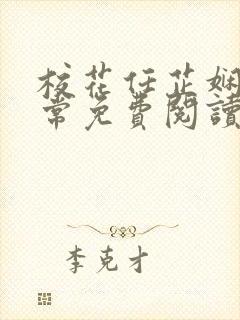 校花任芷娴
常免費閱讀
李克才